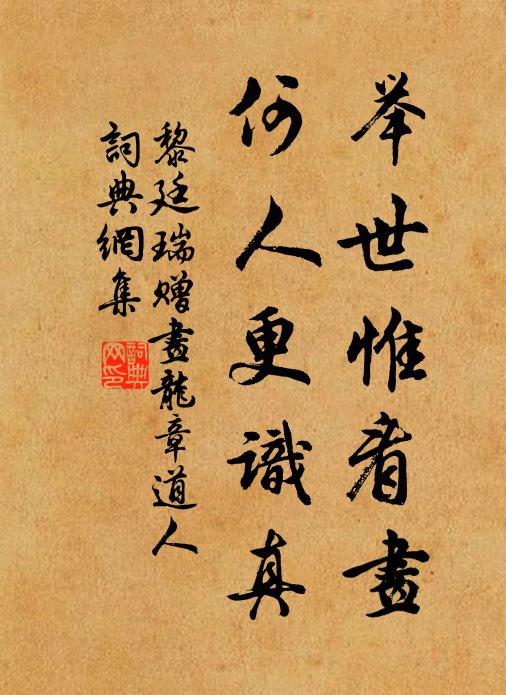 举世惟看畫
何人更識真
黎廷瑞赠畫龍章道人
詞典網集
詞典
网印